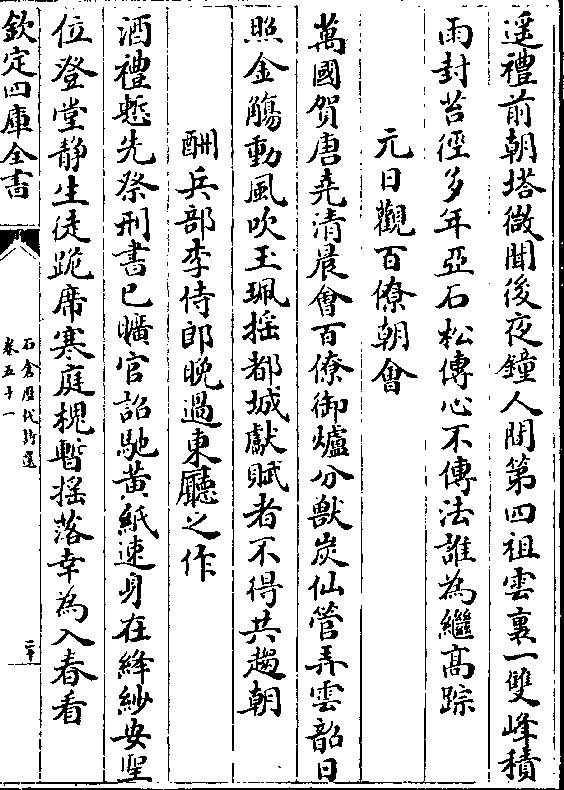 遥禮前朝塔微聞後夜鐘人間第四祖雲裏一雙峰積
雨封苔徑多年亞石松傳心不傳法誰為繼髙踪
元日觀百僚朝會
萬國賀唐堯清晨會百僚御爐分獸炭仙管弄雲韶日
照金觴動風吹玉珮揺都城獻賦者不得共趨朝
酬兵部李侍郎晚過東廳之作
酒禮慙先祭刑書已曠官詔馳黄紙速身在絳紗安聖
位登堂静生徒跪席寒庭槐暫揺落幸為入春看
欽定四庫全書
石倉歷代詩選
卷五十一
二十